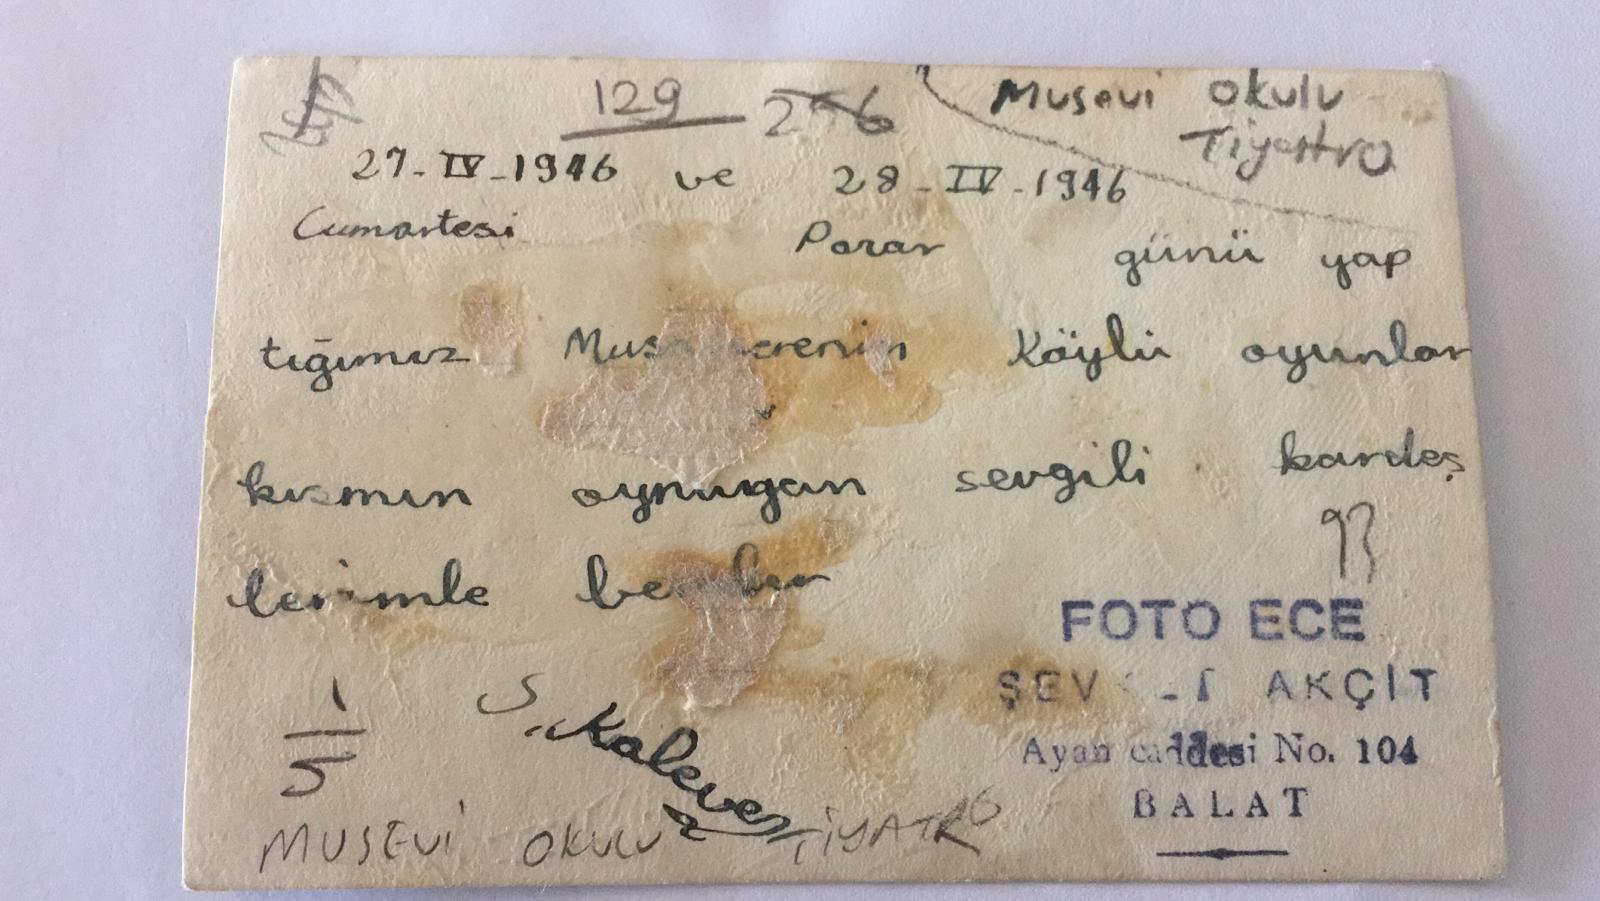 129 256 Musevi okulu
Tiyatro
27-IV-1946 ve 28-IV-1946
Cumartesi Pazar günü yap
tığımız Köylü oyunlar
kısmın oynuyan sevgili kardeş
lerimle
93
FOTO ECE
AKÇİT
Ayan caddesi No. 104
BALAT
1
5
S. Kaleven
MUSEVİ OKULU TİYATRO